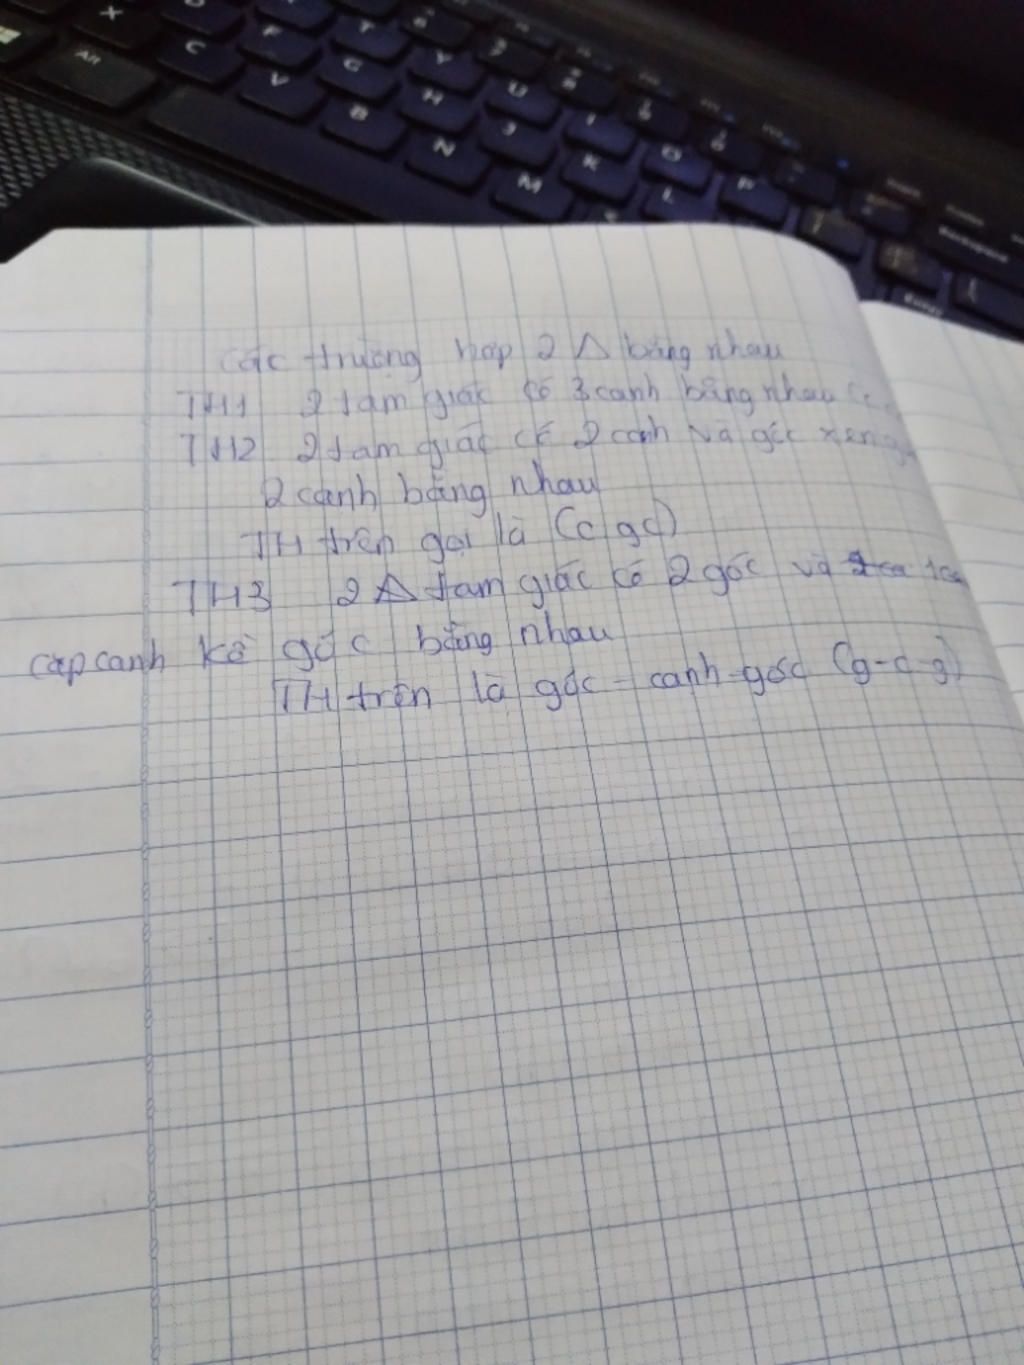 X
D
F
T
6
Alt
C
G
Y
7
8
V
H
U
9
B
J
I
0
N
K
O
M
L
P
Backspace
Enter
Các trường hợp 2 Δ bằng nhau
TH1 2 tam giác có 3 cạnh bằng nhau
TH2 2 tam giác có 2 cạnh và góc xen
2 cạnh bằng nhau
TH trên gọi là (c gc)
TH3 2 Δ tam giác có 2 góc và
cặp cạnh kề góc bằng nhau
TH trên là góc - cạnh - góc (g-c-g)